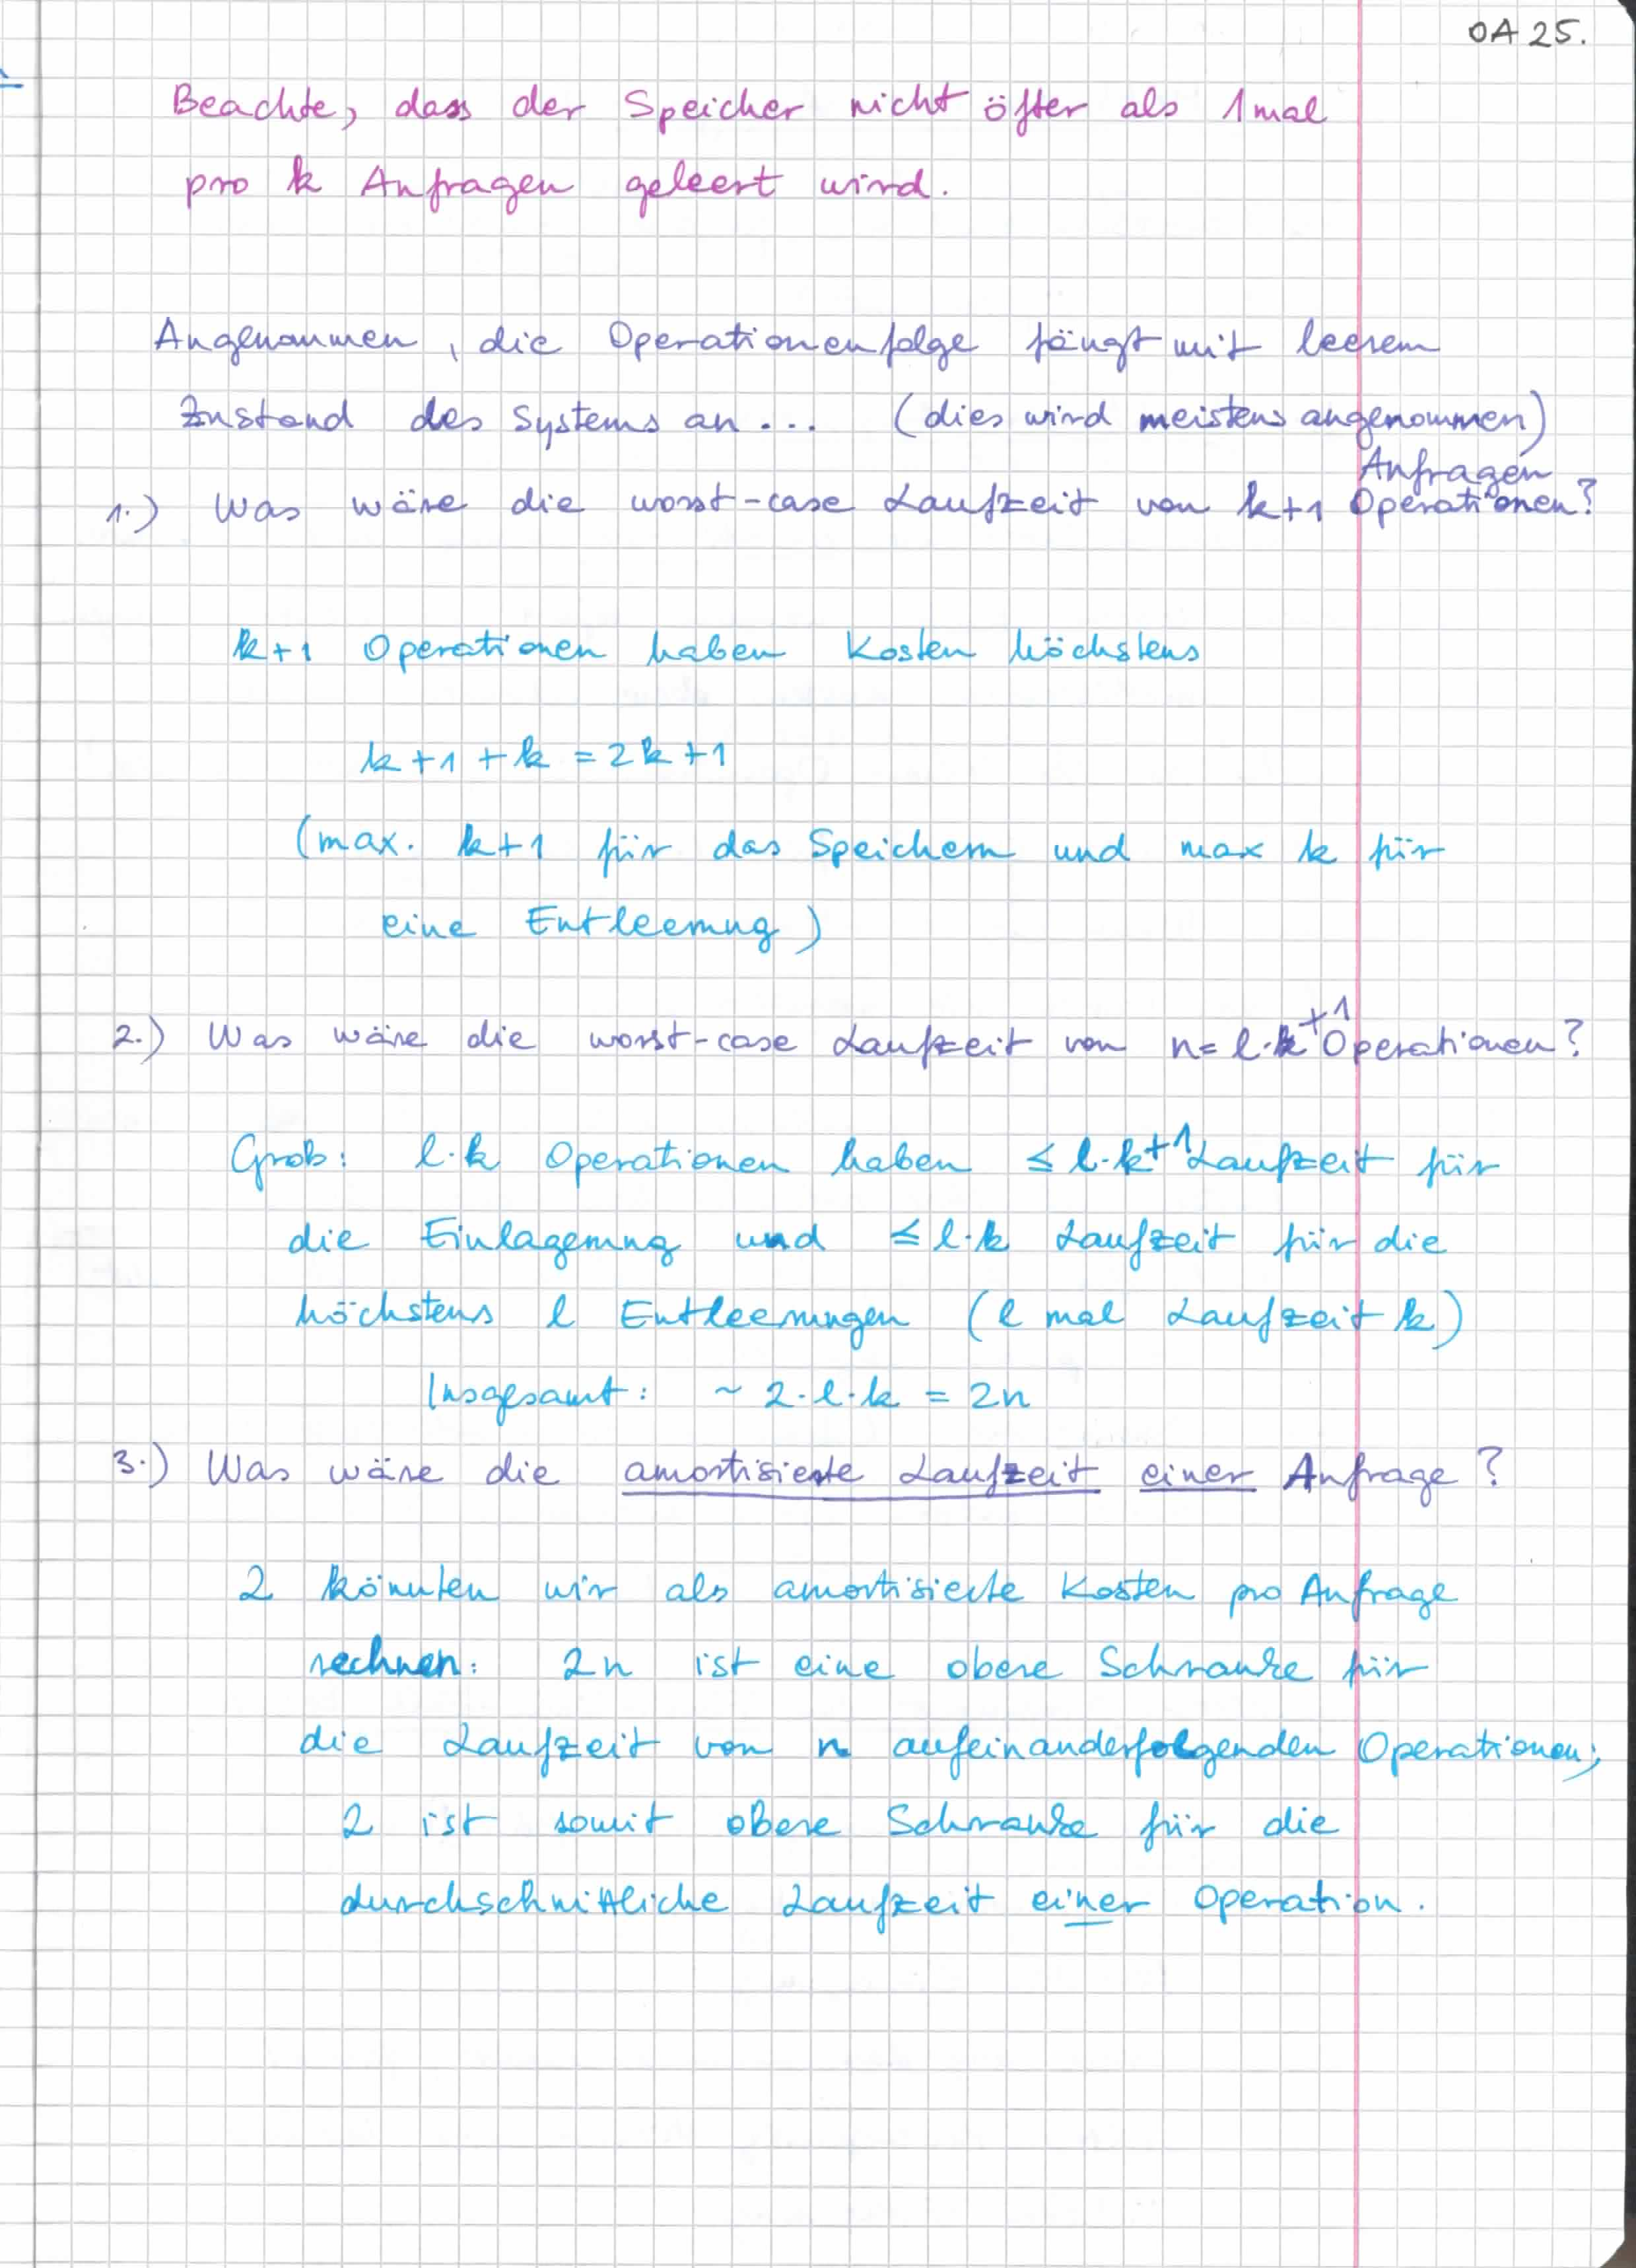 OA 25.
Beachte, dass der Speicher nicht öfter als 1mal
pro k Anfragen geleert wird.
Angenommen, die Operationenfolge fängt mit leerem
Zustand des Systems an... (dies wird meistens angenommen)
Anfragen
1.) Was wäre die worst-case Laufzeit von k+1 Operationen?
k+1 Operationen haben Kosten höchstens
k+1+k = 2k+1
(max. k+1 für das Speichern und max k für
eine Entleerung)
2.) Was wäre die worst-case Laufzeit von n= l·k+1 Operationen?
Grob: l·k Operationen haben ≤ l·k+1 Laufzeit für
die Einlagerung und ≤ l·k Laufzeit für die
höchstens l Entleerungen (l mal Laufzeit k)
Insgesamt: ~ 2·l·k = 2n
3.) Was wäre die amortisierte Laufzeit einer Anfrage?
2 könnten wir als amortisierte Kosten pro Anfrage
rechnen: 2n ist eine obere Schranke für
die Laufzeit von n aufeinanderfolgenden Operationen;
2 ist somit obere Schranke für die
durchschnittliche Laufzeit einer Operation.